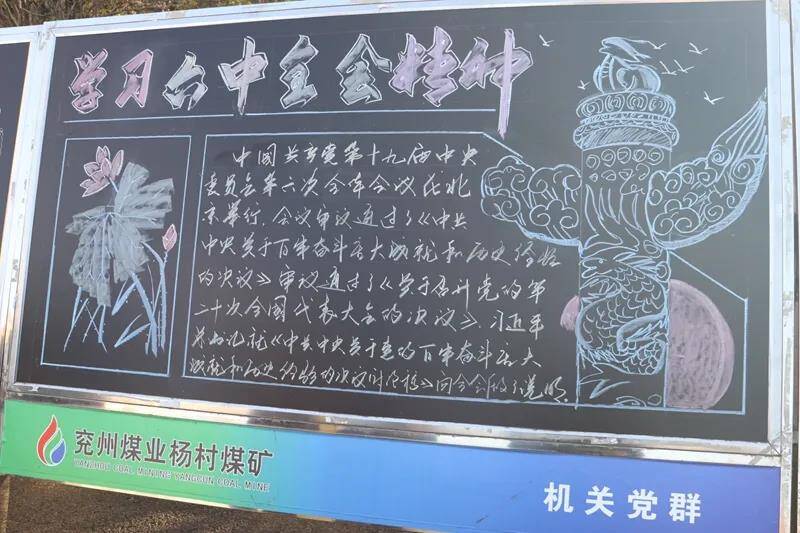 学习六中全会精神
中国共产党第十九届中央
委员会第六次全体会议在北
京举行,会议审议通过了《中共
中央关于百年奋斗重大成就和历史经验
的决议》审议通过了《关于召开党的第
二十次全国代表大会的决议》,习近平
总书记就《中共中央关于党的百年奋斗重大
成就和历史经验的决议讨论稿》向全会作了说明。
兖州煤业杨村煤矿
YANZHOU COAL MINING YANGCUN COAL MINE
机关党群